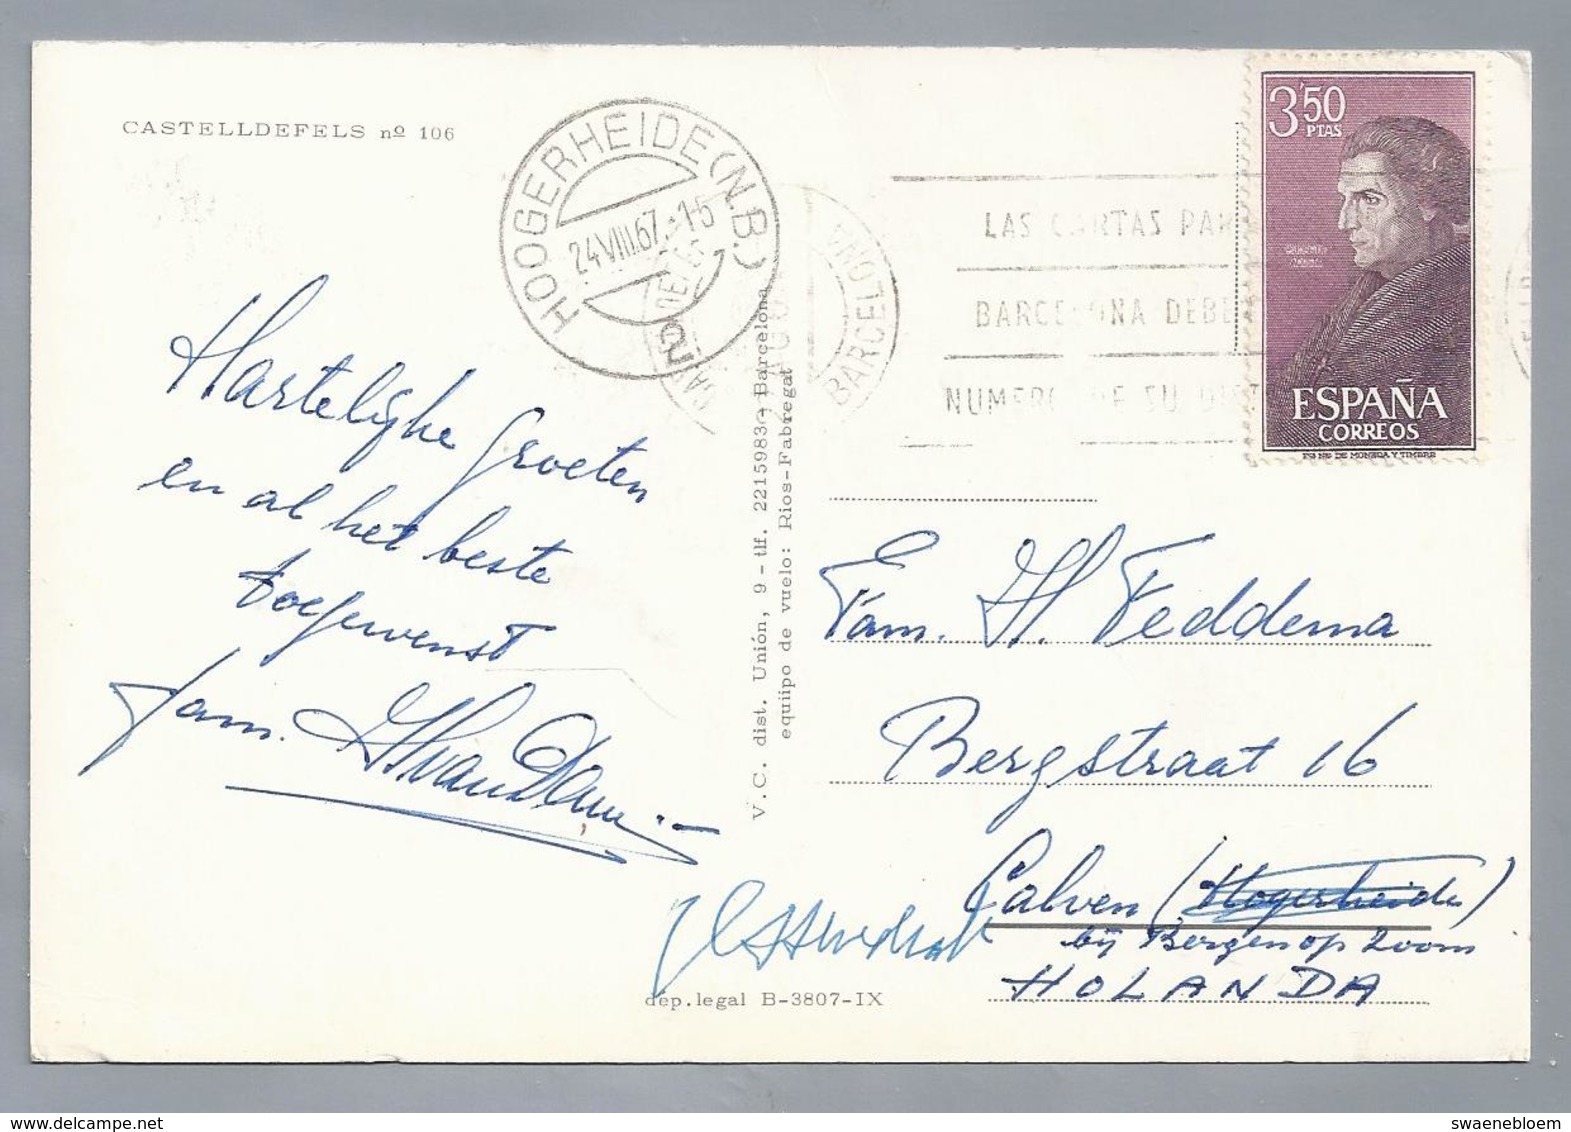 CASTELLDEFELS nº 106
HOOGERHEIDE (N.B.)
24.VIII.67.-15
BARCELONA
LAS CARTAS PAR
BARCELONA DEBE
NUMERO DE SU DIST
3'50
PTAS
ESPAÑA
CORREOS
Hartelijke groeten
en al het beste
toegewenst
fam.
V.C. dist. Unión, 9 - tlf. 2215983 - Barcelona
equiipo de vuelo: Rios-Fabregat
Fam. H. Feddema
Bergstraat 16
Calven (Hogerheide)
bij Bergen op Zoom
HOLANDA
dép.legal B-3807-IX
swaenebloem
delcampe.net